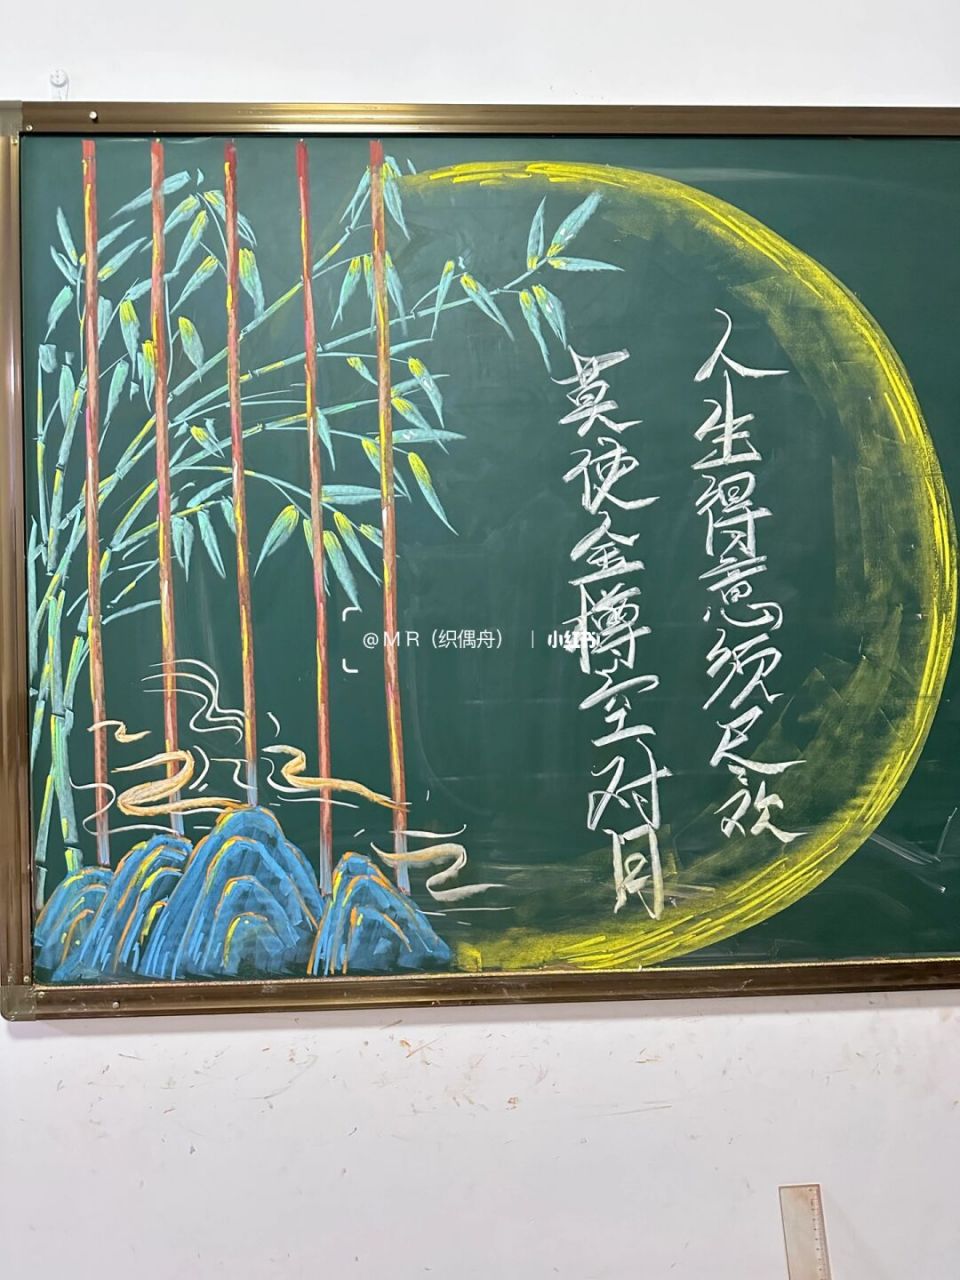 人生得意须尽欢
莫使金樽空对月
@MR（织偶舟） | 小红书